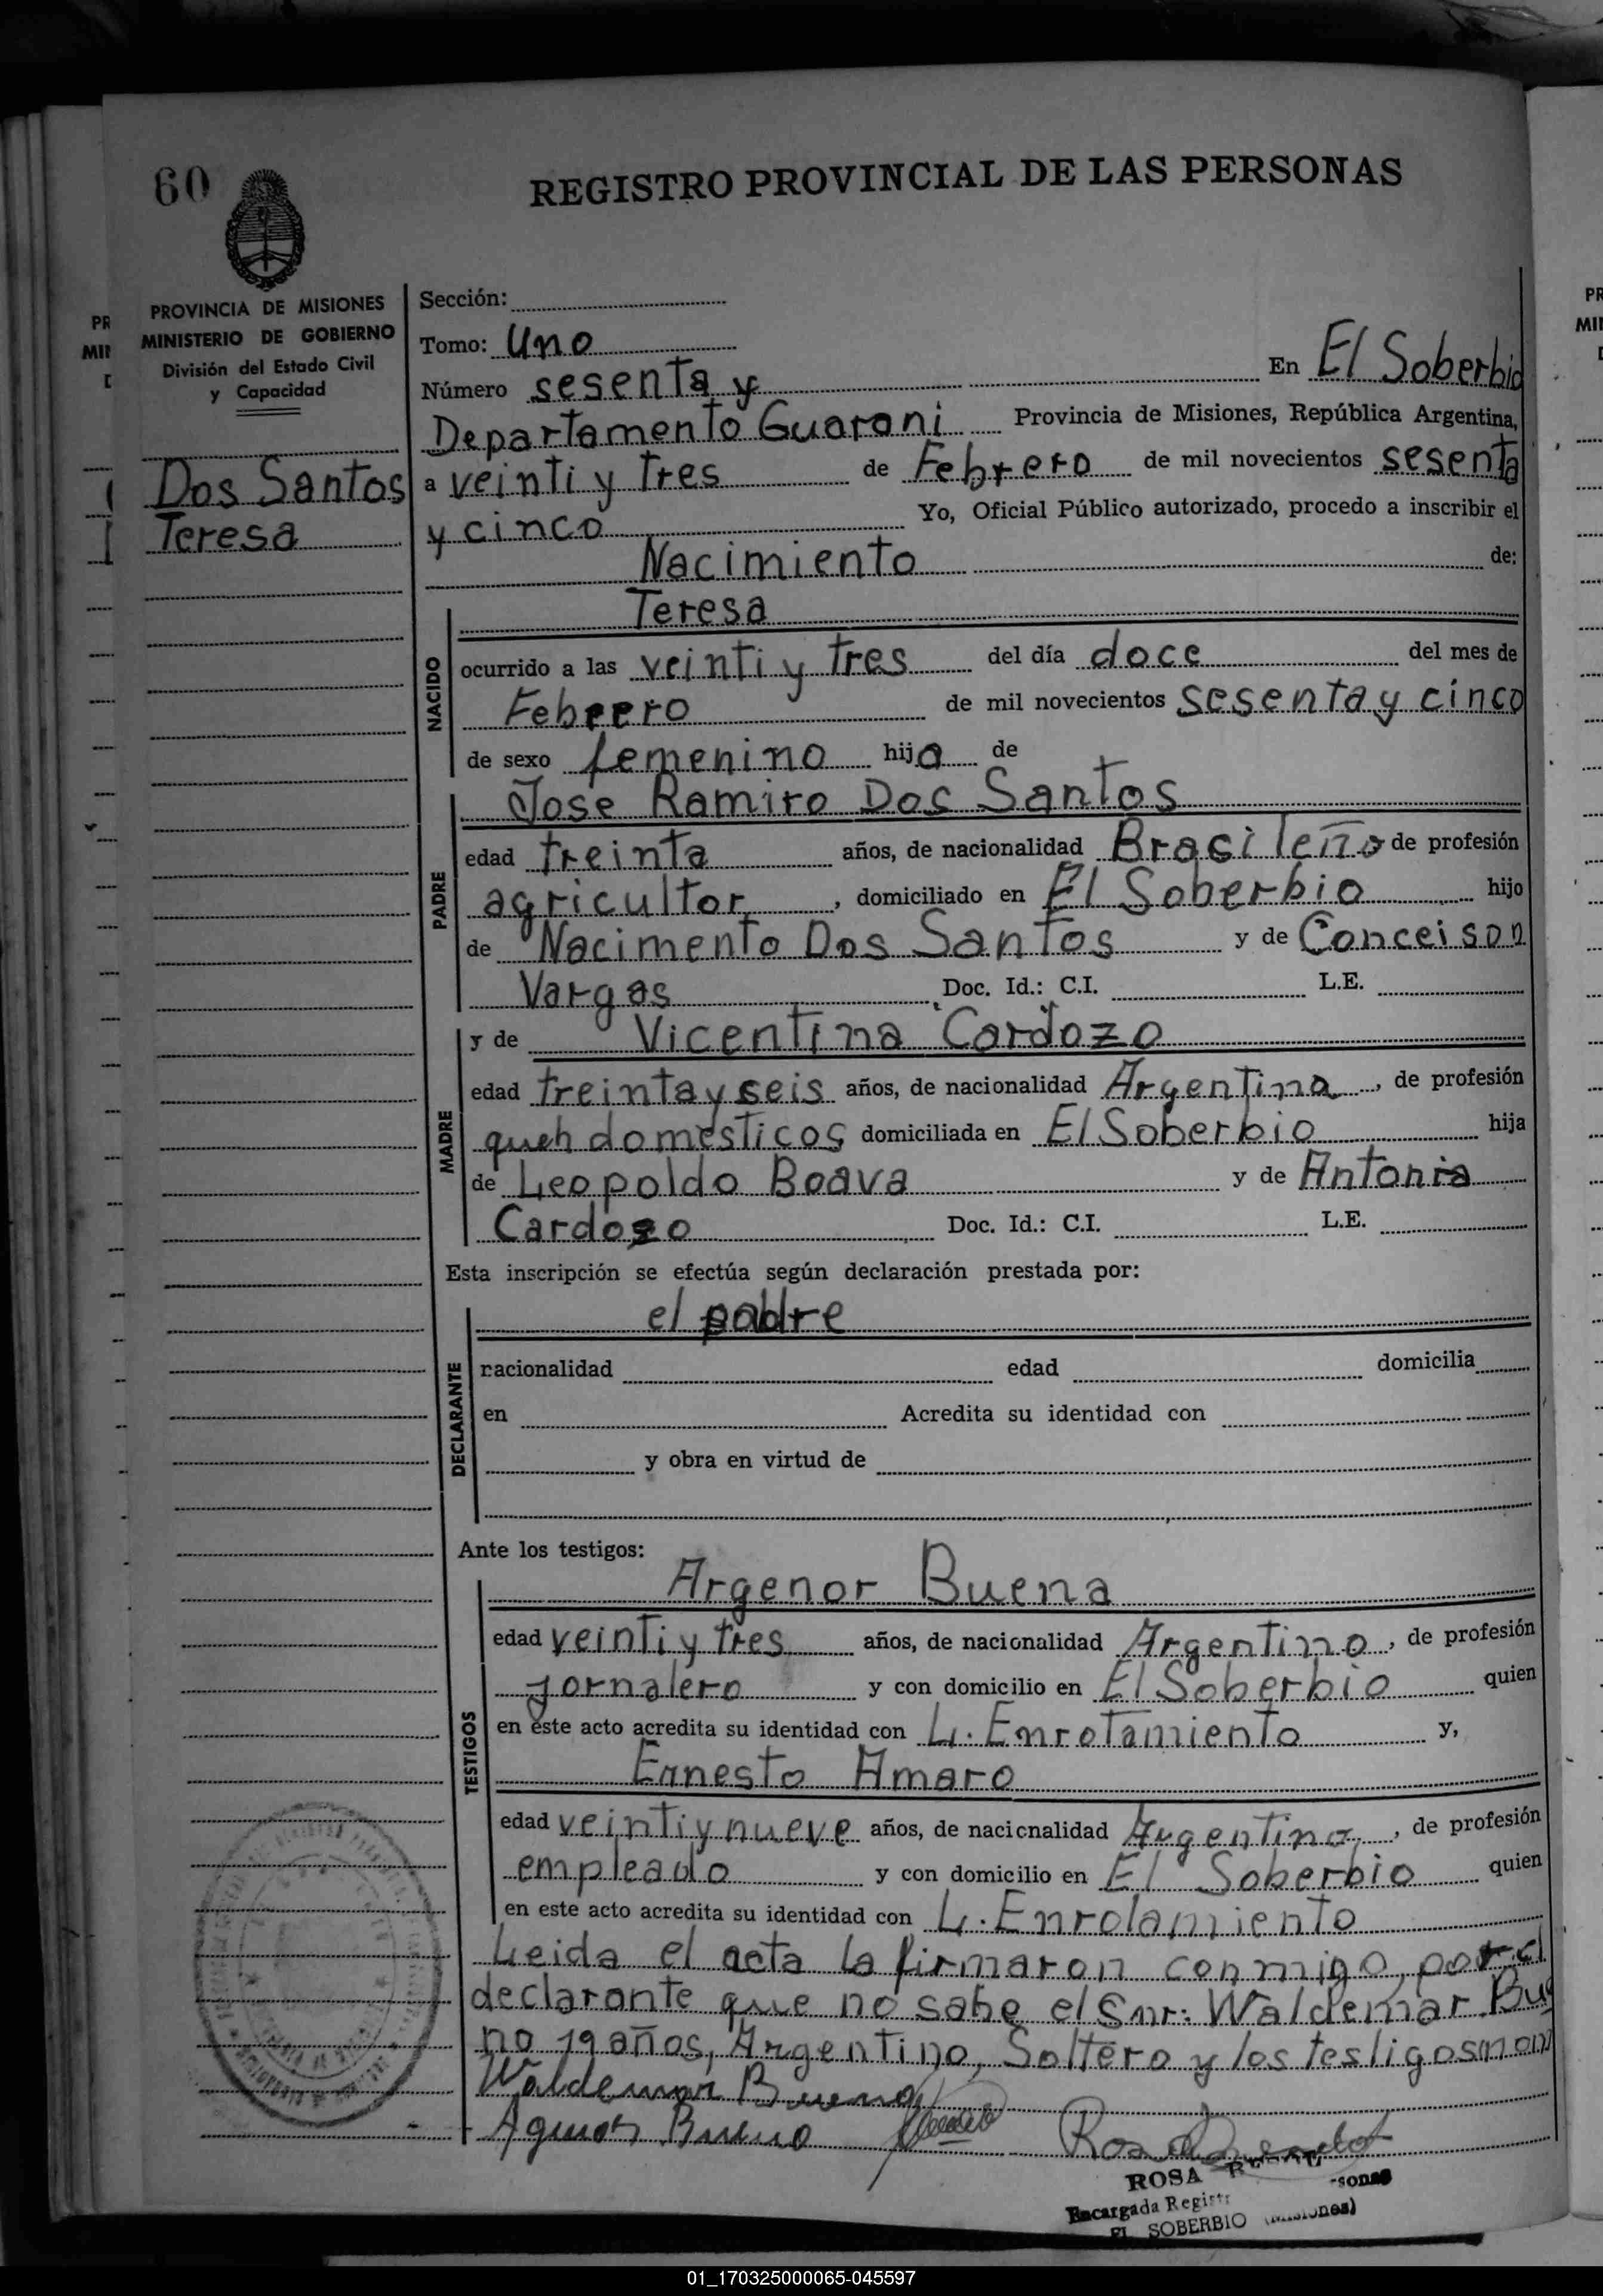 60
REGISTRO PROVINCIAL DE LAS PERSONAS
PROVINCIA DE MISIONES
MINISTERIO DE GOBIERNO
División del Estado Civil
y Capacidad
Dos Santos
Teresa
Sección:
Tomo: Uno
Número sesenta y En El Soberbio
Departamento Guarani Provincia de Misiones, República Argentina,
a veinti y tres de Febrero de mil novecientos sesenta
y cinco Yo, Oficial Público autorizado, procedo a inscribir el
Nacimiento de:
NACIDO
Teresa
ocurrido a las veinti y tres del día doce del mes de
Febrero de mil novecientos sesenta y cinco
de sexo femenino hija de
PADRE
Jose Ramiro Dos Santos
edad treinta años, de nacionalidad Brasileño de profesión
agricultor, domiciliado en El Soberbio hijo
de Nacimento Dos Santos y de Conceison
Vargas Doc. Id.: C.I. L.E.
MADRE
y de Vicentina Cardozo
edad treinta y seis años, de nacionalidad Argentina, de profesión
queh domesticos domiciliada en El Soberbio hija
de Leopoldo Boava y de Antonia
Cardozo Doc. Id.: C.I. L.E.
Esta inscripción se efectúa según declaración prestada por:
DECLARANTE
el padre
nacionalidad edad domicilia
en Acredita su identidad con
y obra en virtud de
Ante los testigos:
TESTIGOS
Argenor Buena
edad veinti y tres años, de nacionalidad Argentino, de profesión
jornalero y con domicilio en El Soberbio quien
en este acto acredita su identidad con L. Enrotamiento y,
Ernesto Amaro
edad veinti y nueve años, de nacionalidad Argentino, de profesión
empleado y con domicilio en El Soberbio quien
en este acto acredita su identidad con L. Enrolamiento
Leida el acta la firmaron conmigo, por el
declarante que no sabe el Snr: Waldemar Bue
no 19 años, Argentino, Soltero y los testigos
Waldemar Bueno
Agenor Bueno
ROSA
Encargada Registr
EL SOBERBIO (Misiones)
01_170325000065-045597